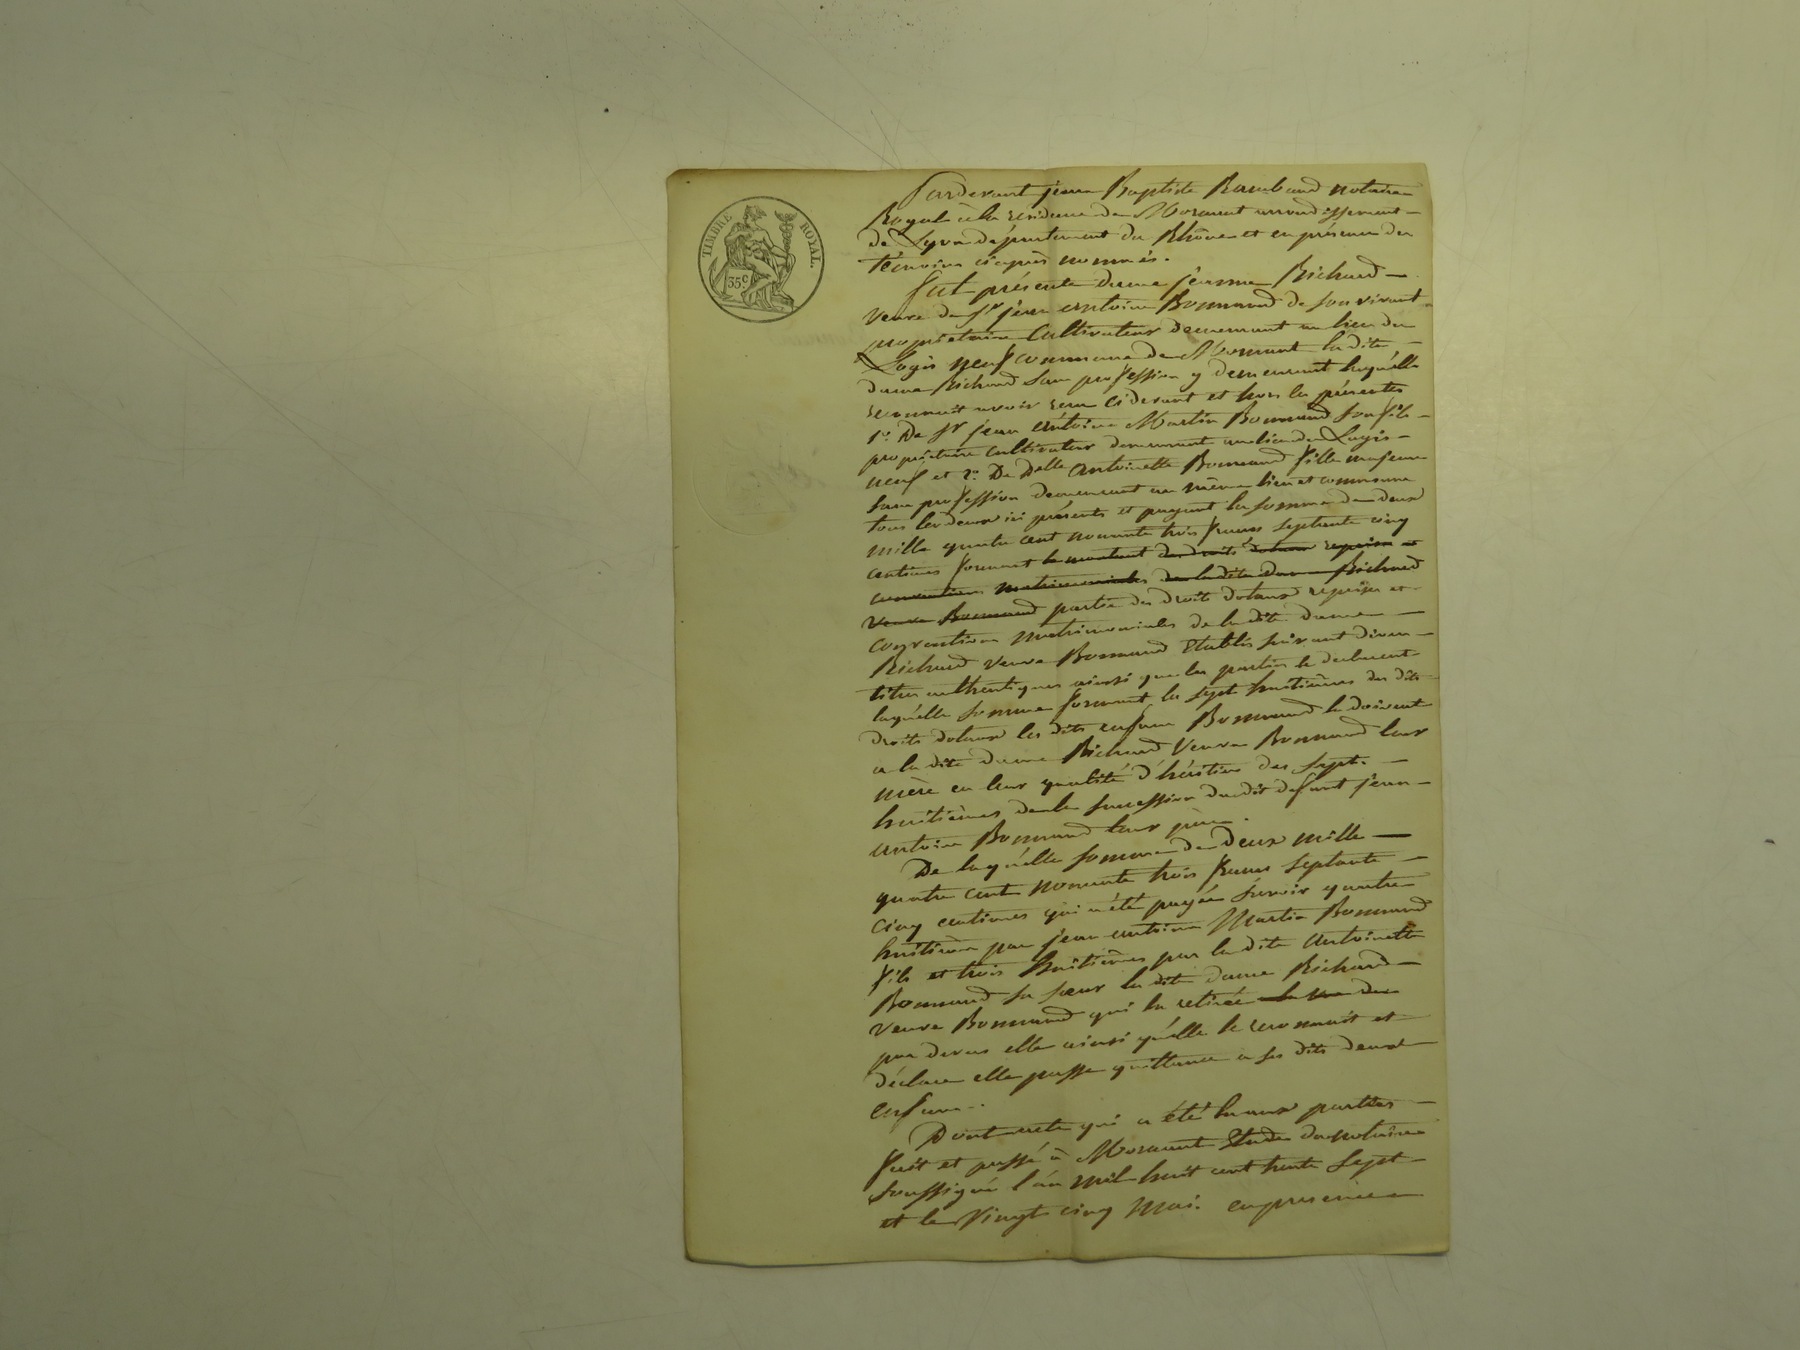 TIMBRE ROYAL.
35 c
Pardevant jean Baptiste Raimbaud notaire
Royal à la résidence de Mornant arrondissement
de Lyon département du Rhône et en présence des
témoins ci après nommés.
fut présente dame jeanne Richard
veuve de Sr jean antoine Bonnand de son vivant
propriétaire Cultivateur demeurant au lieu du
Logis neuf commune de Mornant la dite
dame Richard sans profession y demeurant laquelle
reconnait avoir reçu ci devant et hors les présentes
1º. De Sr jean Antoine Martin Bonnand son fils
propriétaire cultivateur demeurant au lieu du Logis
neuf et 2º. De Delle Antoinette Bonnand fille majeure
sans profession demeurant au même lieu et commune
tous les deux ici présents et payant la somme de deux
mille quatre cent nonante trois francs septante cinq
centimes formant le montant des droits dotaux reprises et
conventions matrimoniales de la dite dame Richard
veuve Bonnand partie des droits dotaux reprises et
conventions matrimoniales de la dite dame
Richard veuve Bonnand établis suivant divers
titres authentiques ainsi que les parties le déclarent
laquelle somme formant les sept huitièmes des dits
droits dotaux les dits enfans Bonnand la doivent
a la dite dame Richard Veuve Bonnand leur
mère en leur qualité d'héritiers des sept
huitièmes de la succession dudit defunt jean
antoine Bonnand leur père.
De laquelle somme de Deux mille
quatre cent nonante trois francs septante
cinq centimes qui a été payée savoir quatre
huitièmes par jean antoine Martin Bonnand
fils et trois huitièmes par la dite Antoinette
Bonnand sa sœur la dite dame Richard
veuve Bonnand qui la retirée
par devers elle ainsi qu'elle le reconnait et
déclare elle passe quittance a ses dits deux
enfans.
Dont acte qui a été lu aux parties
fait et passé à Mornant Etude du notaire
soussigné l'an mil huit cent trente sept
et le Vingt cinq Mai. en présence